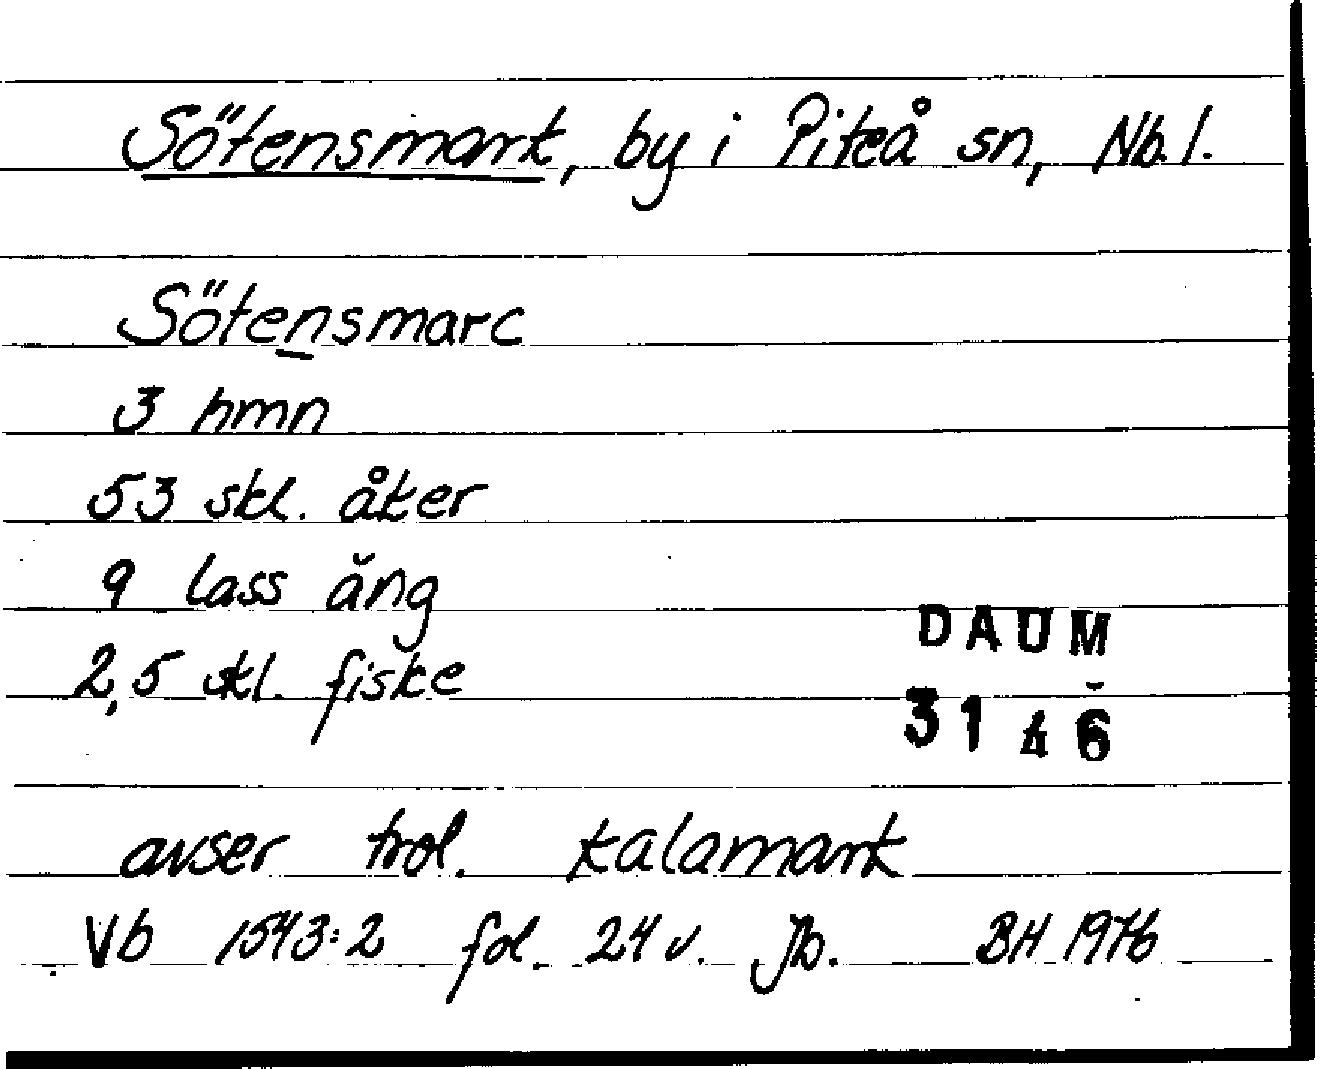 Sötensmark, by i Piteå sn, Nb.l.
Sötensmarc
3 hmn
53 skl. åker
9 lass äng
2,5 skl. fiske
DAUM
3146
avser trol. Kalamark
Vb 1543:2 fol. 24 v. Jb. BH 1976